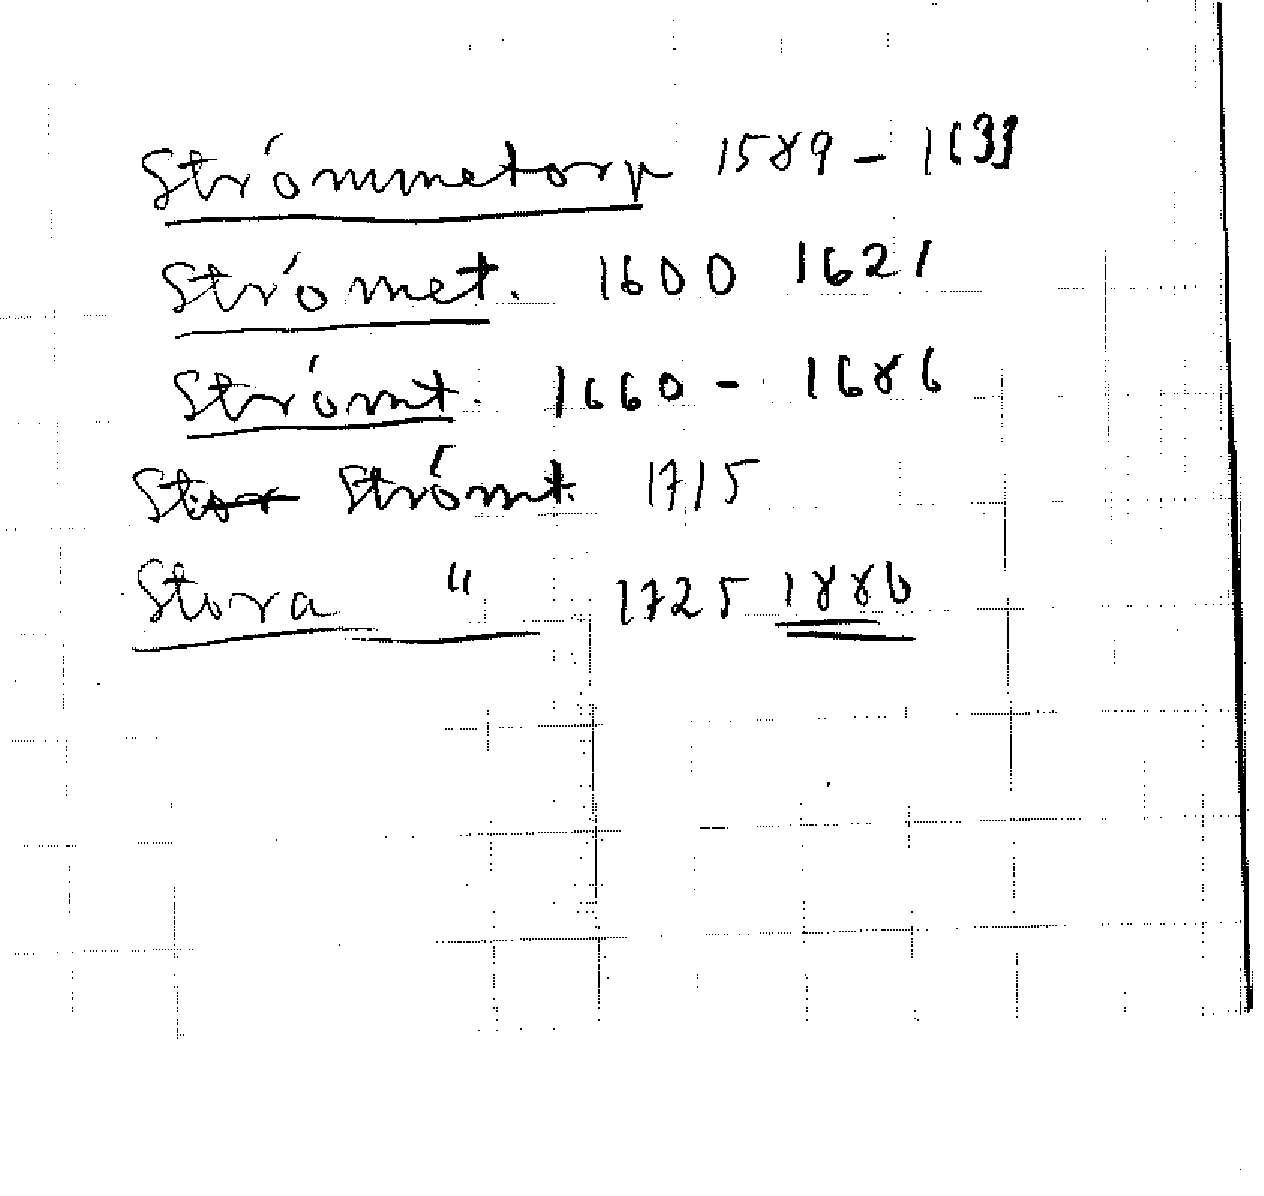 Strómmetorp 1589 - 1633
Strómet. 1600 1621
Strómt. 1660 - 1686
Stor Strómt. 1715
Stora " 1725 1886